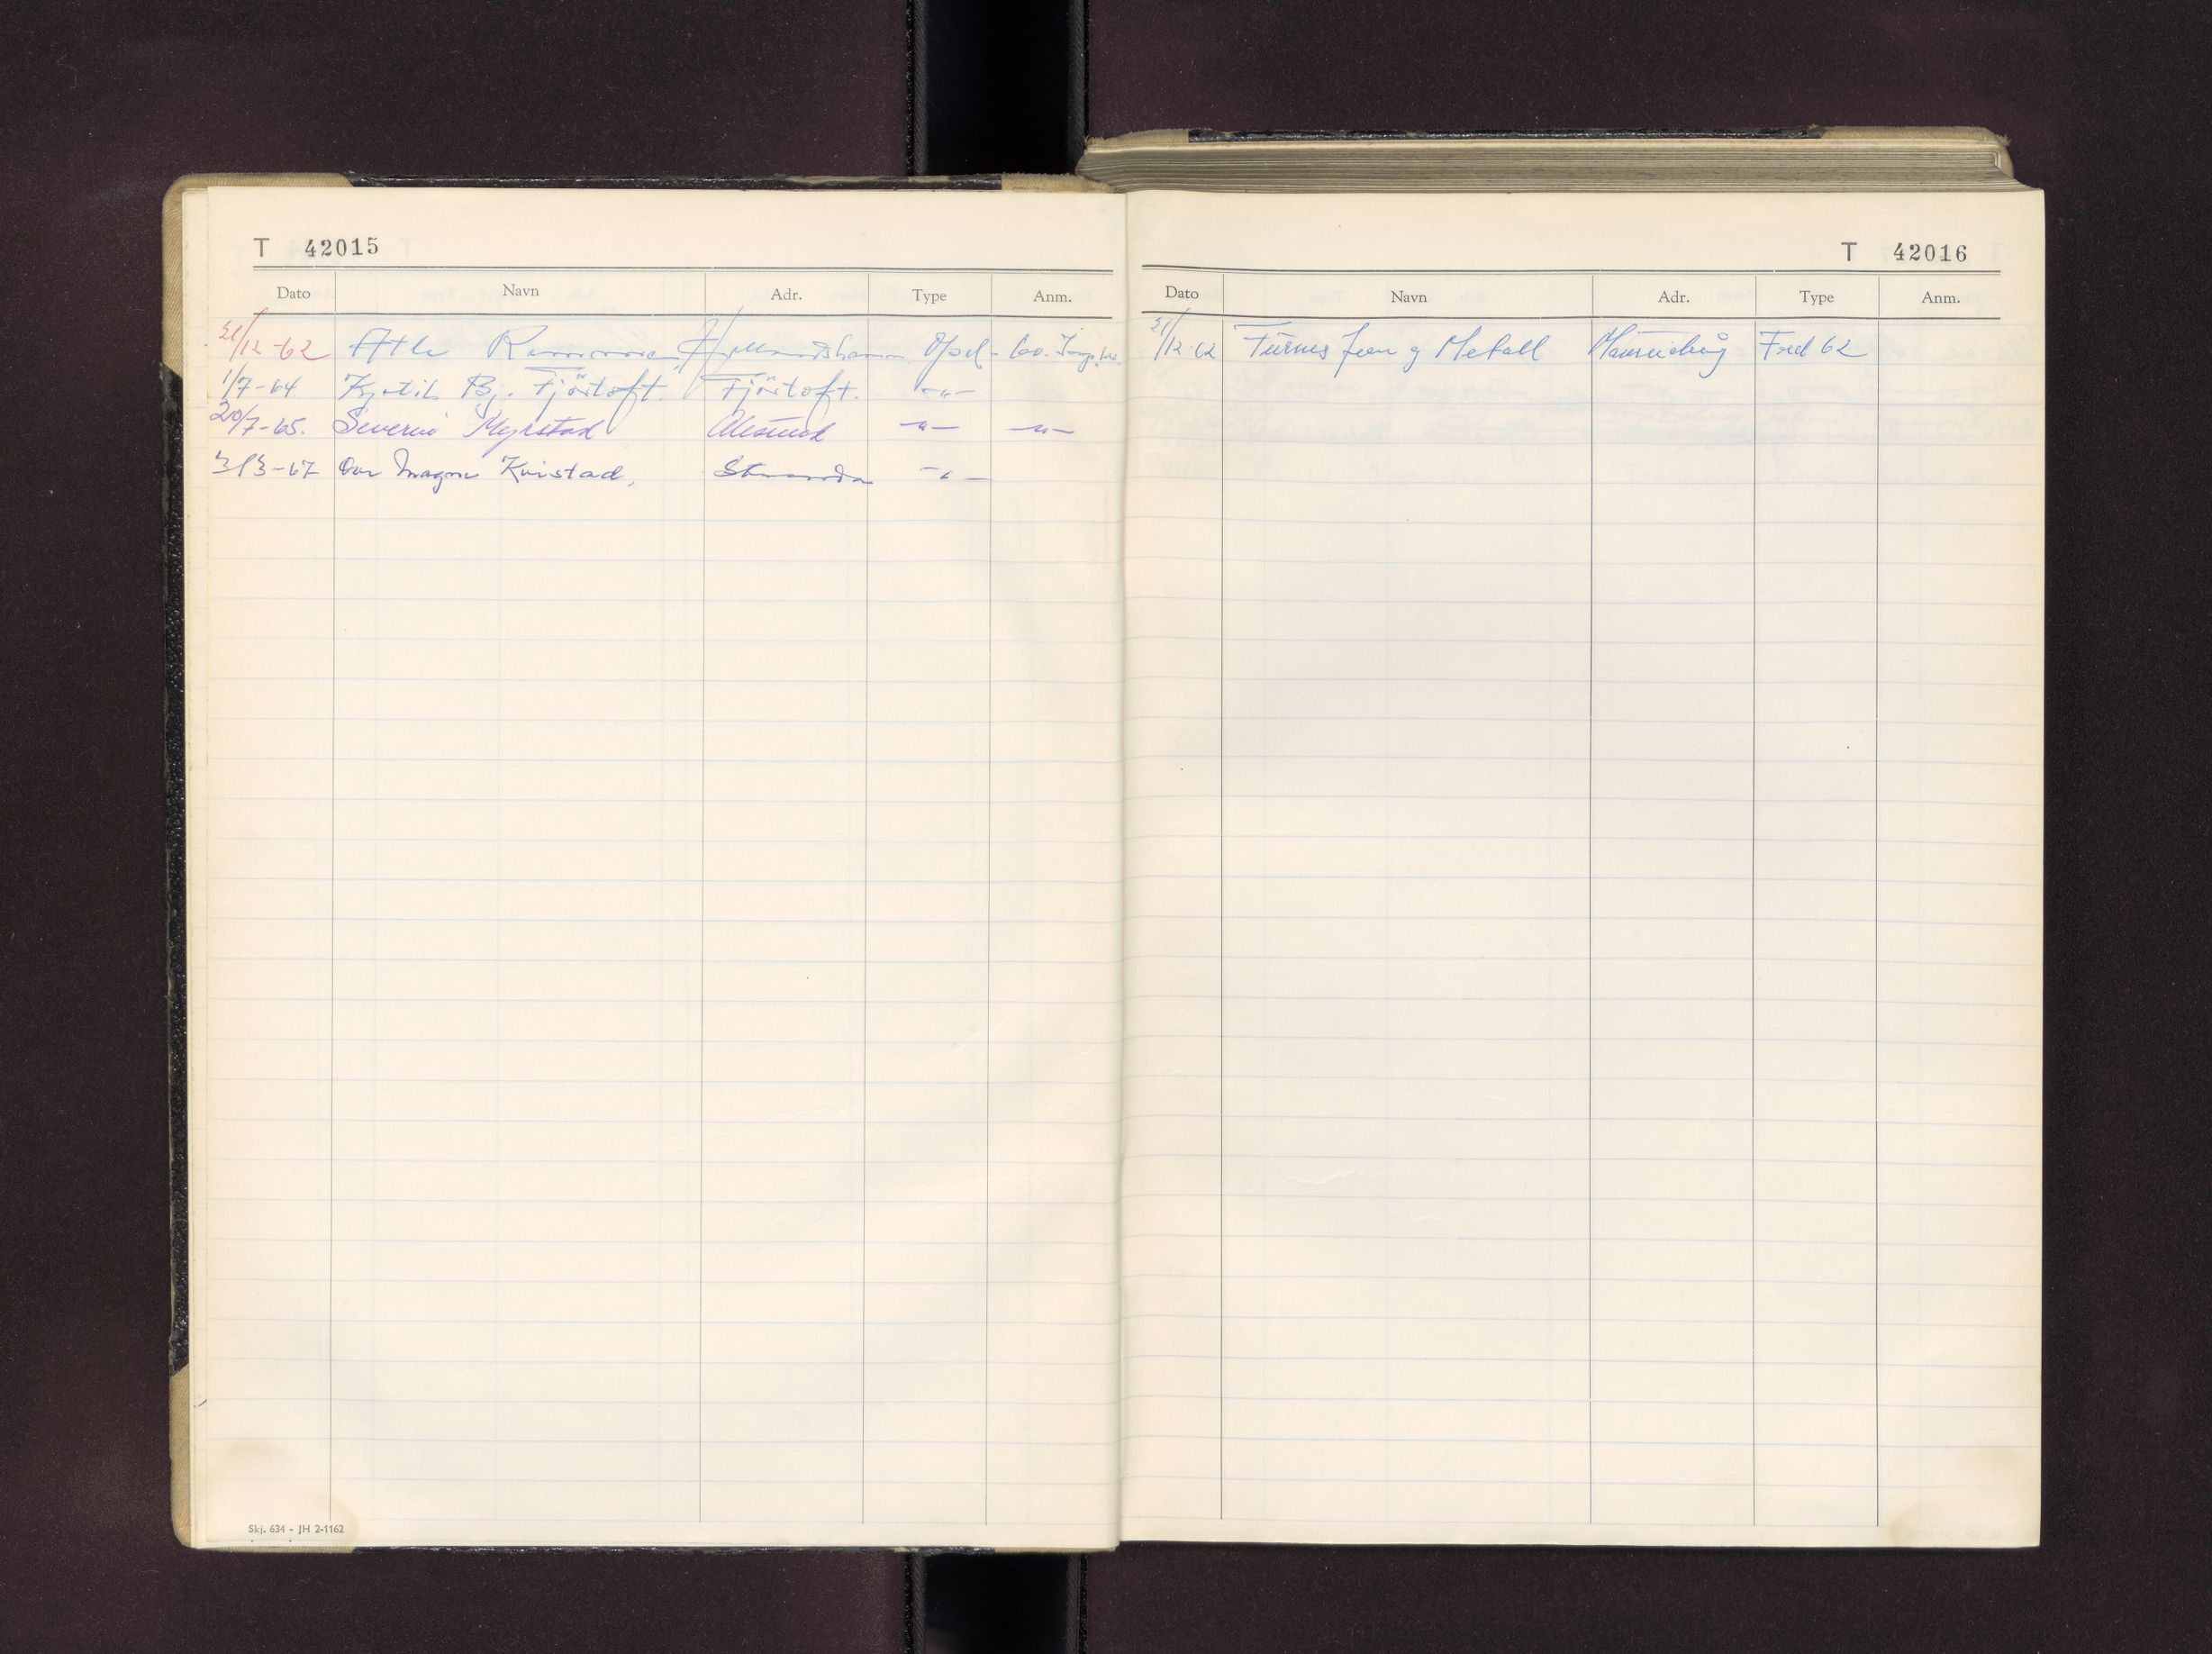 T 42015
Dato Navn Adr. Type Anm.
21/12-62 Atle Opel
1/7-64. Kjetil Bj. Fjörtoft. Fjörtoft. -"-
20/7-65. Severin Myrstad Ålesund -"- -"-
3/3-67 Ove Magne Kvistad, Stranda -"-
Skj. 634 - JH 2-1162
T 42016
Dato Navn Adr. Type Anm.
21/12-62 Furnes Jern og Metall Fred 62